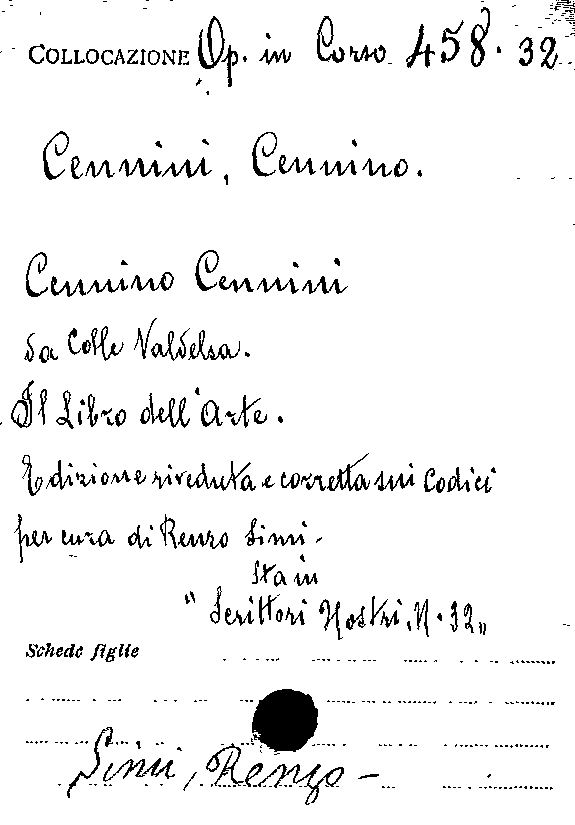 COLLOCAZIONE Op. in Corso 458. 32
Cennini, Cennino.
Cennino Cennini
da Colle Valdelsa.
Il Libro dell'Arte.
Edizione riveduta e corretta sui Codici
per cura di Renzo Simi.
Sta in
"Scrittori Nostri, N. 32"
Schede figlie
Simi, Renzo -